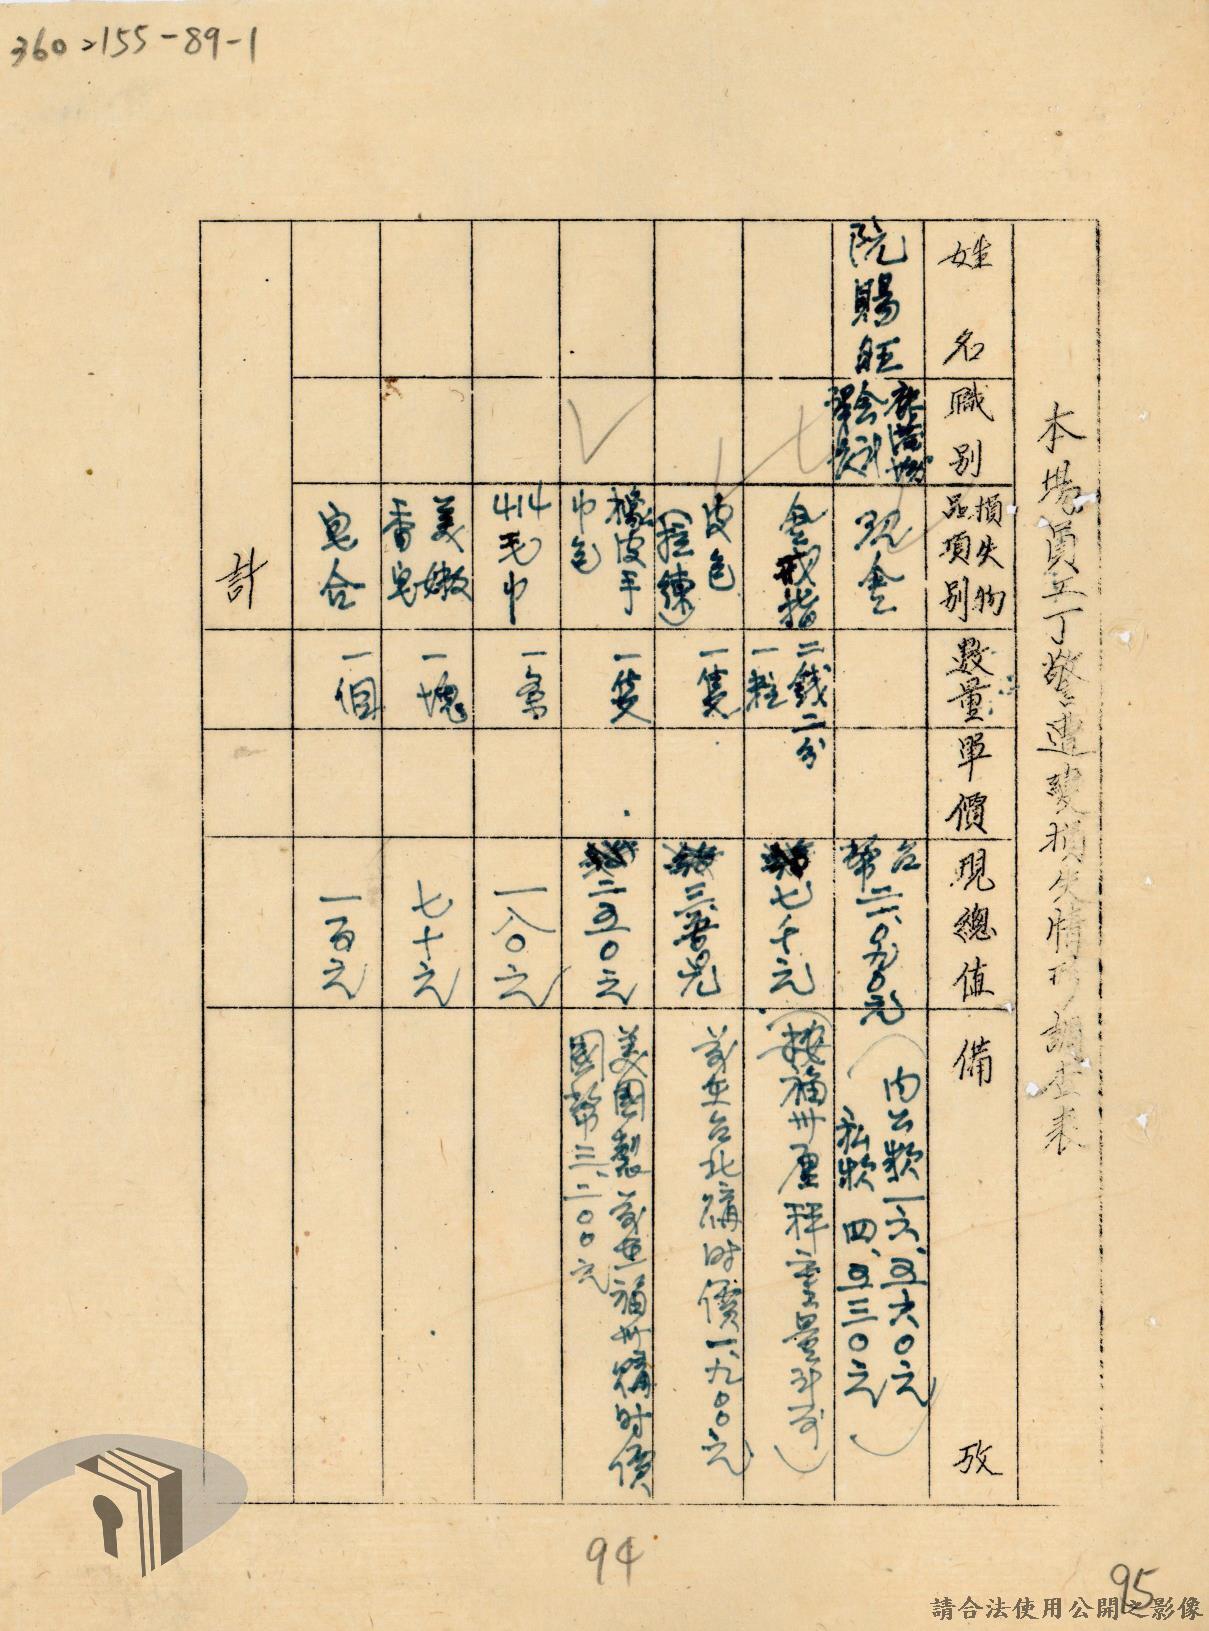 360=155-89-1
本場員工丁警遭變損失情形調查表
姓名
職別
損失物
品項別
數量
單價
現總值
備攷
阮賜旺
鹿港場
會計
課長
現金
台
幣二一、〇九〇元
(內公款一六、五六〇元
私款 四、五三〇元)
金戒指
二錢二分
一粒
七千元
(按福州厘秤重量計可)
皮包
(拉鍊)
一隻
三、元
前在台北購時價一、九〇〇元
橡皮手
巾包
一隻
二五〇元
美國製前在福州購時價
國幣三、二〇〇元
414
毛巾
一條
一八〇元
美嫩
香皂
一塊
七十元
皂合
一個
一百元
計
94
95
請合法使用公開之影像